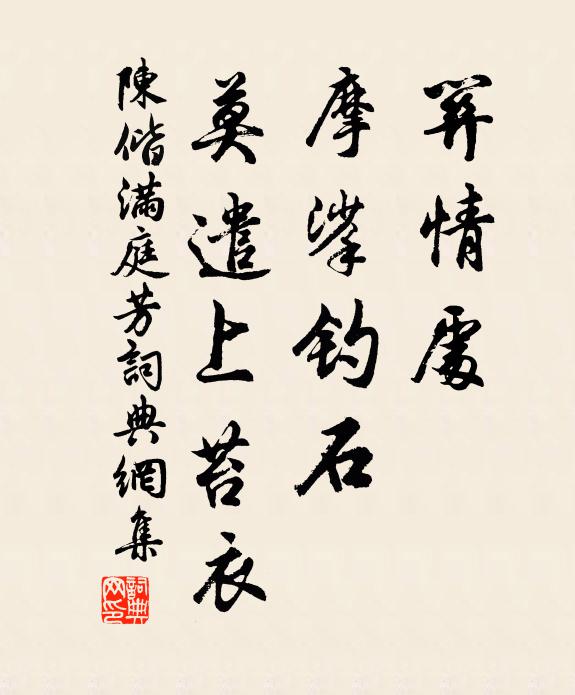 關情處
摩挲釣石
莫遣上苔衣
陳偕滿庭芳詞典網集
詞典
网印